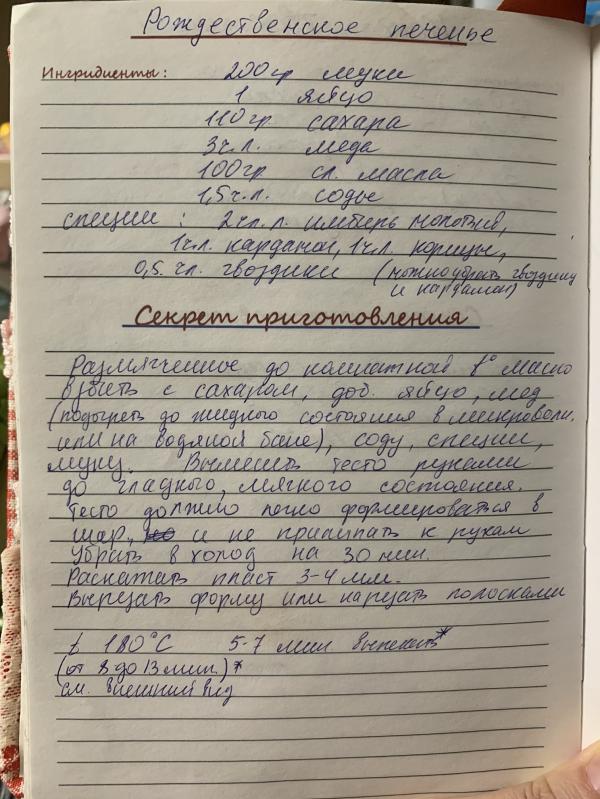 Рождественское печенье
Ингридиенты: 200гр муки
1 яйцо
110гр. сахара
3ч.л. меда
100гр сл. масла
1,5ч.л. соды
специи: 2чл.л. имбирь молотый,
1ч.л. кардамон, 1чл. корицы,
0,5. чл. гвоздики (можно убрать гвоздику
и кардамон)
Секрет приготовления
Размягченное до комнатной t° масло
взбить с сахаром, доб. яйцо, мед
(подогреть до жидкого состояния в микроволн.
или на водяной бане), соду, специи,
муку. Вымесить тесто руками
до гладкого, мягкого состояния.
Тесто должно легко формироваться в
шар, и не прилипать к рукам
Убрать в холод на 30 мин.
Раскатать пласт 3-4 мм.
Вырезать форму или нарезать полосками
t 180°С 5-7 мин выпекать*
(от 8 до 13 мин)*
см. внешний вид